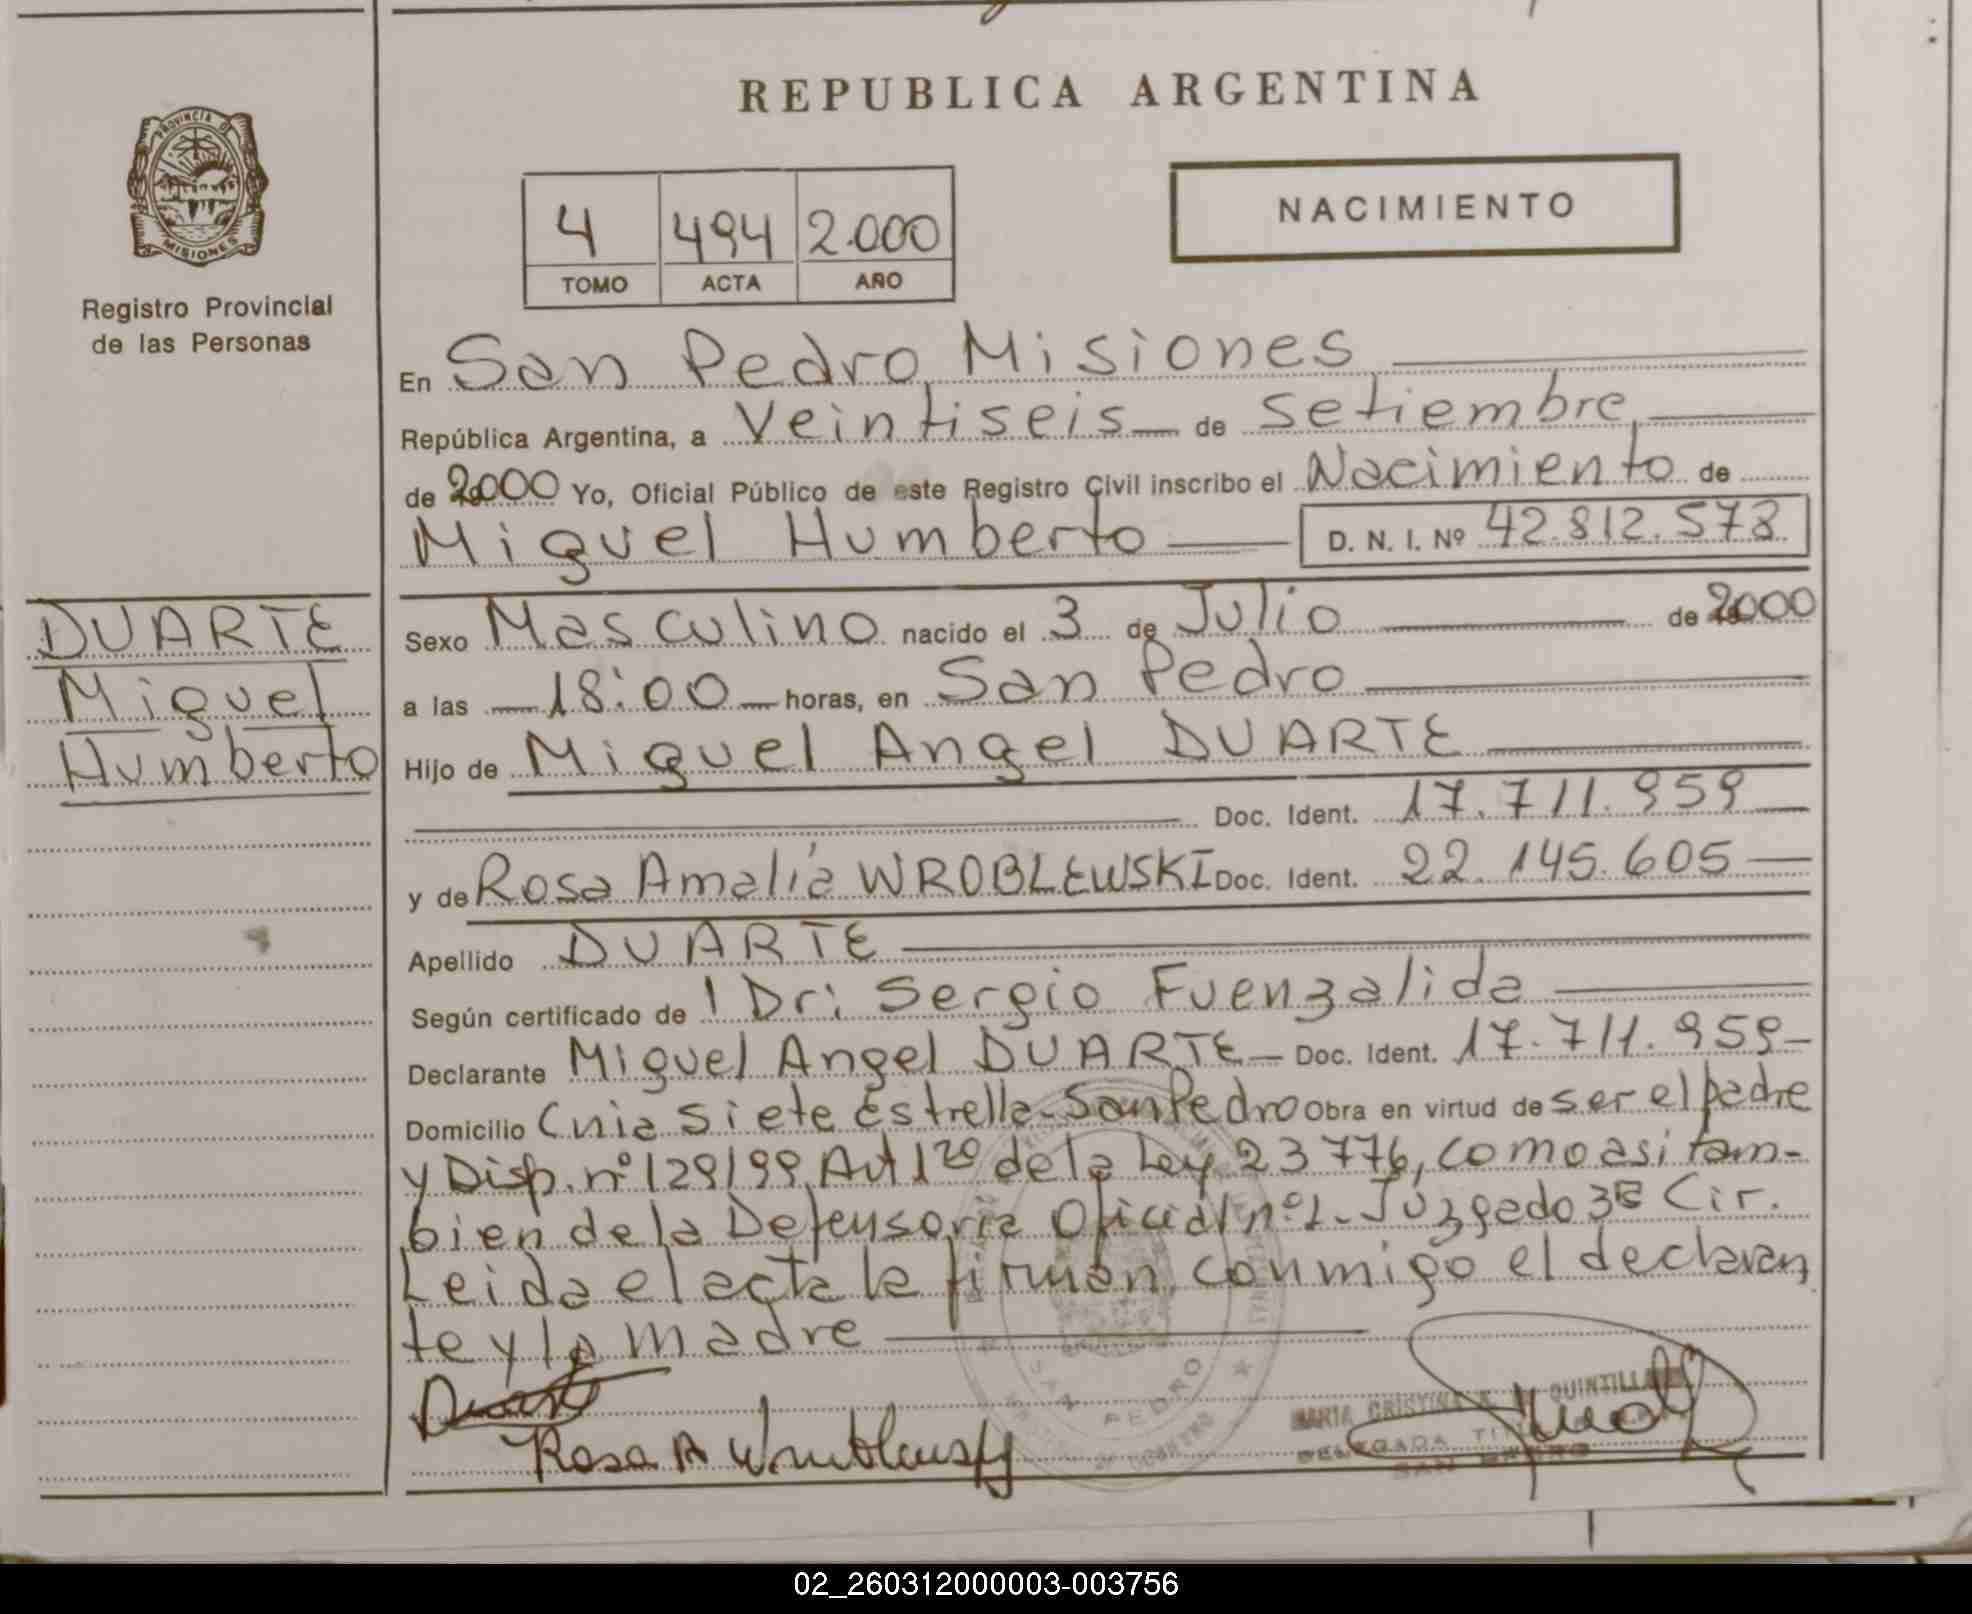 REPUBLICA ARGENTINA
PROVINCIA DE
MISIONES
Registro Provincial
de las Personas
4 494 2.000
TOMO ACTA AÑO
NACIMIENTO
En San Pedro, Misiones
República Argentina, a Veintiseis de Setiembre
de 2000 Yo, Oficial Público de este Registro Civil inscribo el Nacimiento de
Miguel Humberto D. N. I. Nº 42.812.573
DUARTE
Miguel
Humberto
Sexo Masculino nacido el 3 de Julio de 2000
a las 18:00 horas, en San Pedro
Hijo de Miguel Angel DUARTE
Doc. Ident. 17.711.959
y de Rosa Amalia WROBLEWSKI Doc. Ident. 22.145.605
Apellido DUARTE
Según certificado de Dr: Sergio Fuenzalida
Declarante Miguel Angel DUARTE Doc. Ident. 17.711.959
Domicilio Cnia Siete Estrella-San Pedro Obra en virtud de ser el padre
y Disp. nº 129/99 Art 1º de la Ley 23776, como asi tam-
bien de la Defensoria Oficial nº 1-Juzgado 3ª Cir.
Leida el acta la firman conmigo el declaran
te y la madre
Duarte
Rosa A Wrublewsky
MARIA CRISTINA QUINTILLAN
DELEGADA
SAN PEDRO
SAN PEDRO
02_260312000003-003756